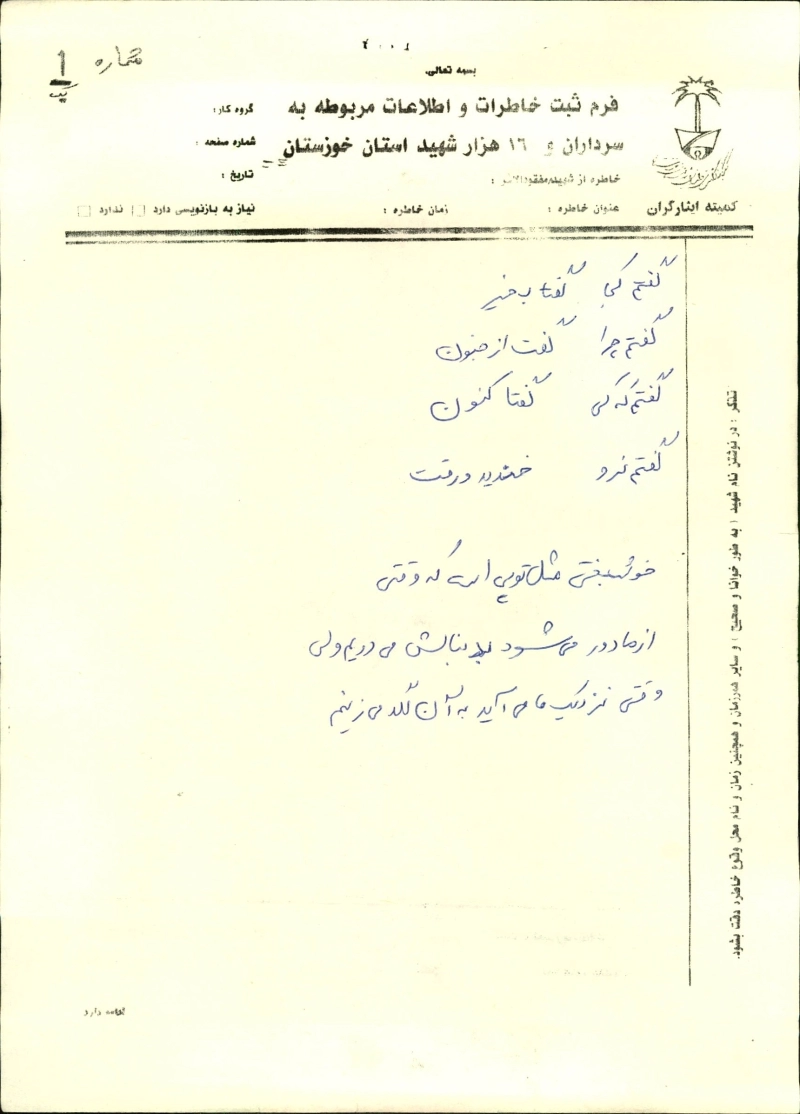 شماره 1
یک
۲۰۰۱
بسمه تعالی
فرم ثبت خاطرات و اطلاعات مربوطه به
سرداران و ۱۶ هزار شهید استان خوزستان
گروه کار:
شماره صفحه :
تاریخ :
خاطره از شهید،مفقودالاثر :
کمیته ایثارگران
عنوان خاطره :
زمان خاطره :
نیاز به بازنویسی دارد □ ندارد □
گفتم کجا گفتا به خیر
گفتم چرا گفت از جنون
گفتم که کی گفتا کنون
گفتم نرو خندید و رفت
خوشبختی مثل توپی است که وقتی
از ما دور می شود بدنبالش می دویم ولی
وقتی نزدیک ما می آید به آن لگد می زنیم
تذکر : در نوشتن نام شهید ( به طور خوانا و صحیح ) و سایر همرزمان و همچنین زمان و نام محل وقوع خاطره دقت بشود.
ادامه دارد